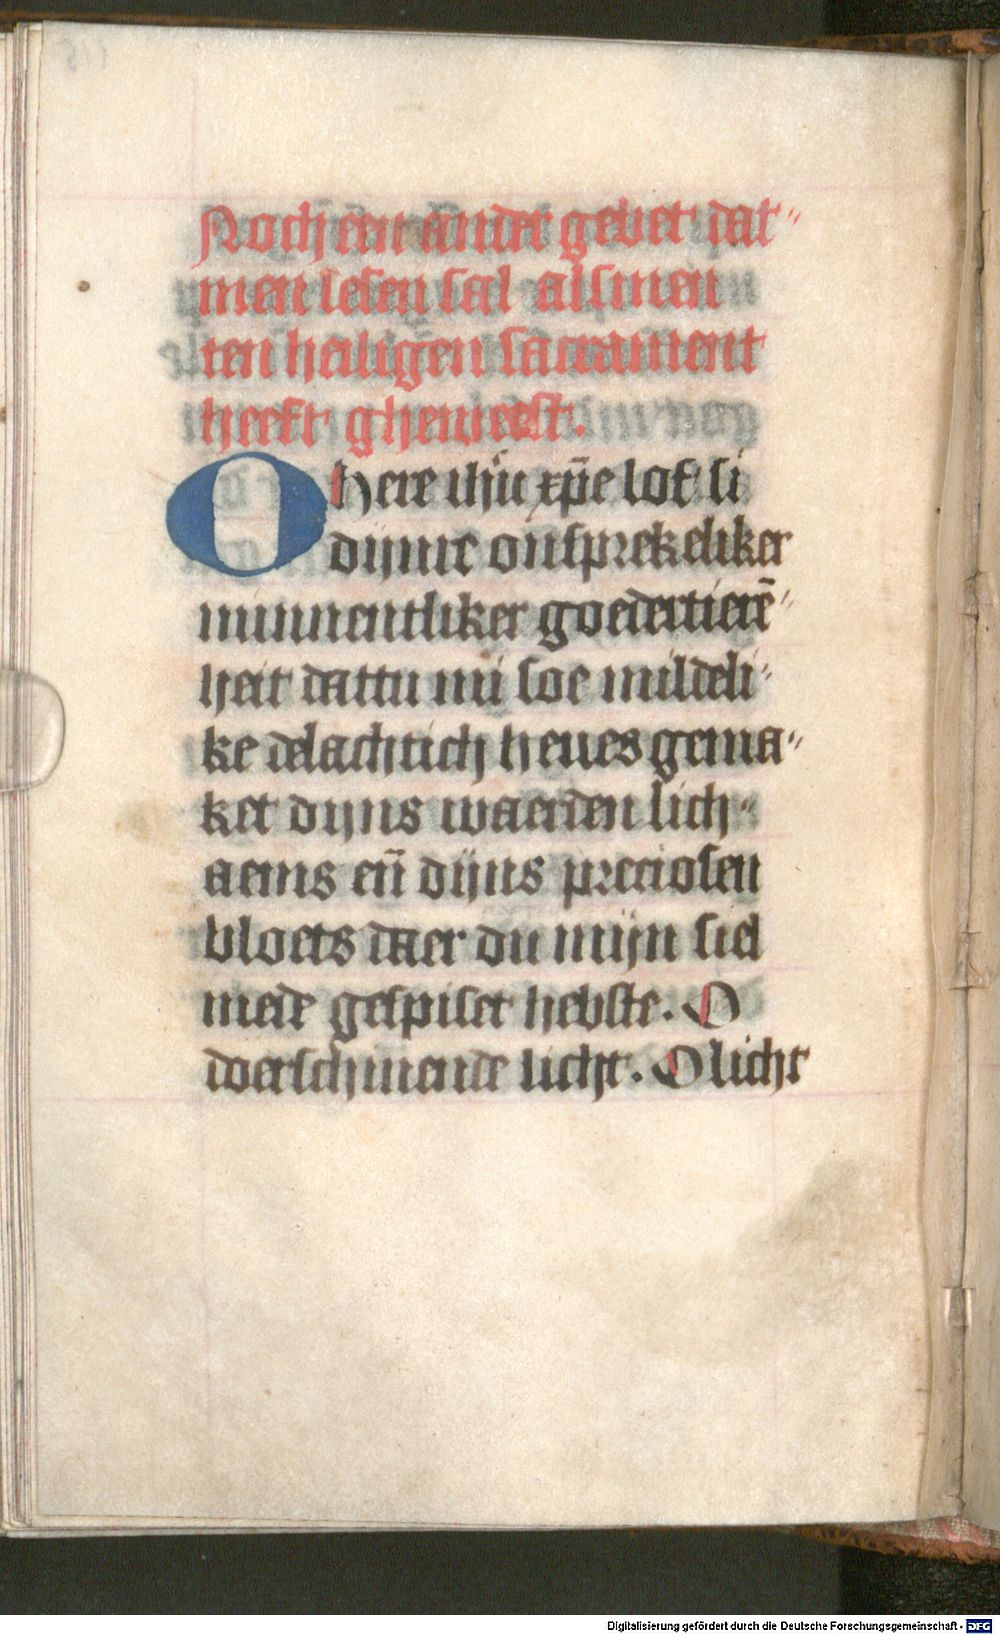 Noch een ander gebet dat"
men lesen sal alsmen
ten heiligen sacrament
heeft gheweest.
O here ihū xp̄e lof si
dijnre onsprekeliker
minnentliker goedertierē"
heit dattu mi soe mildeli"
ke delachtich heues gema"
ket dijns waerden lich"
aems eñ dijns preciosen
bloets daer du mijn siel
mede gespiset hebste. O
doerschinende licht. O licht
Digitalisierung gefördert durch die Deutsche Forschungsgemeinschaft - DFG